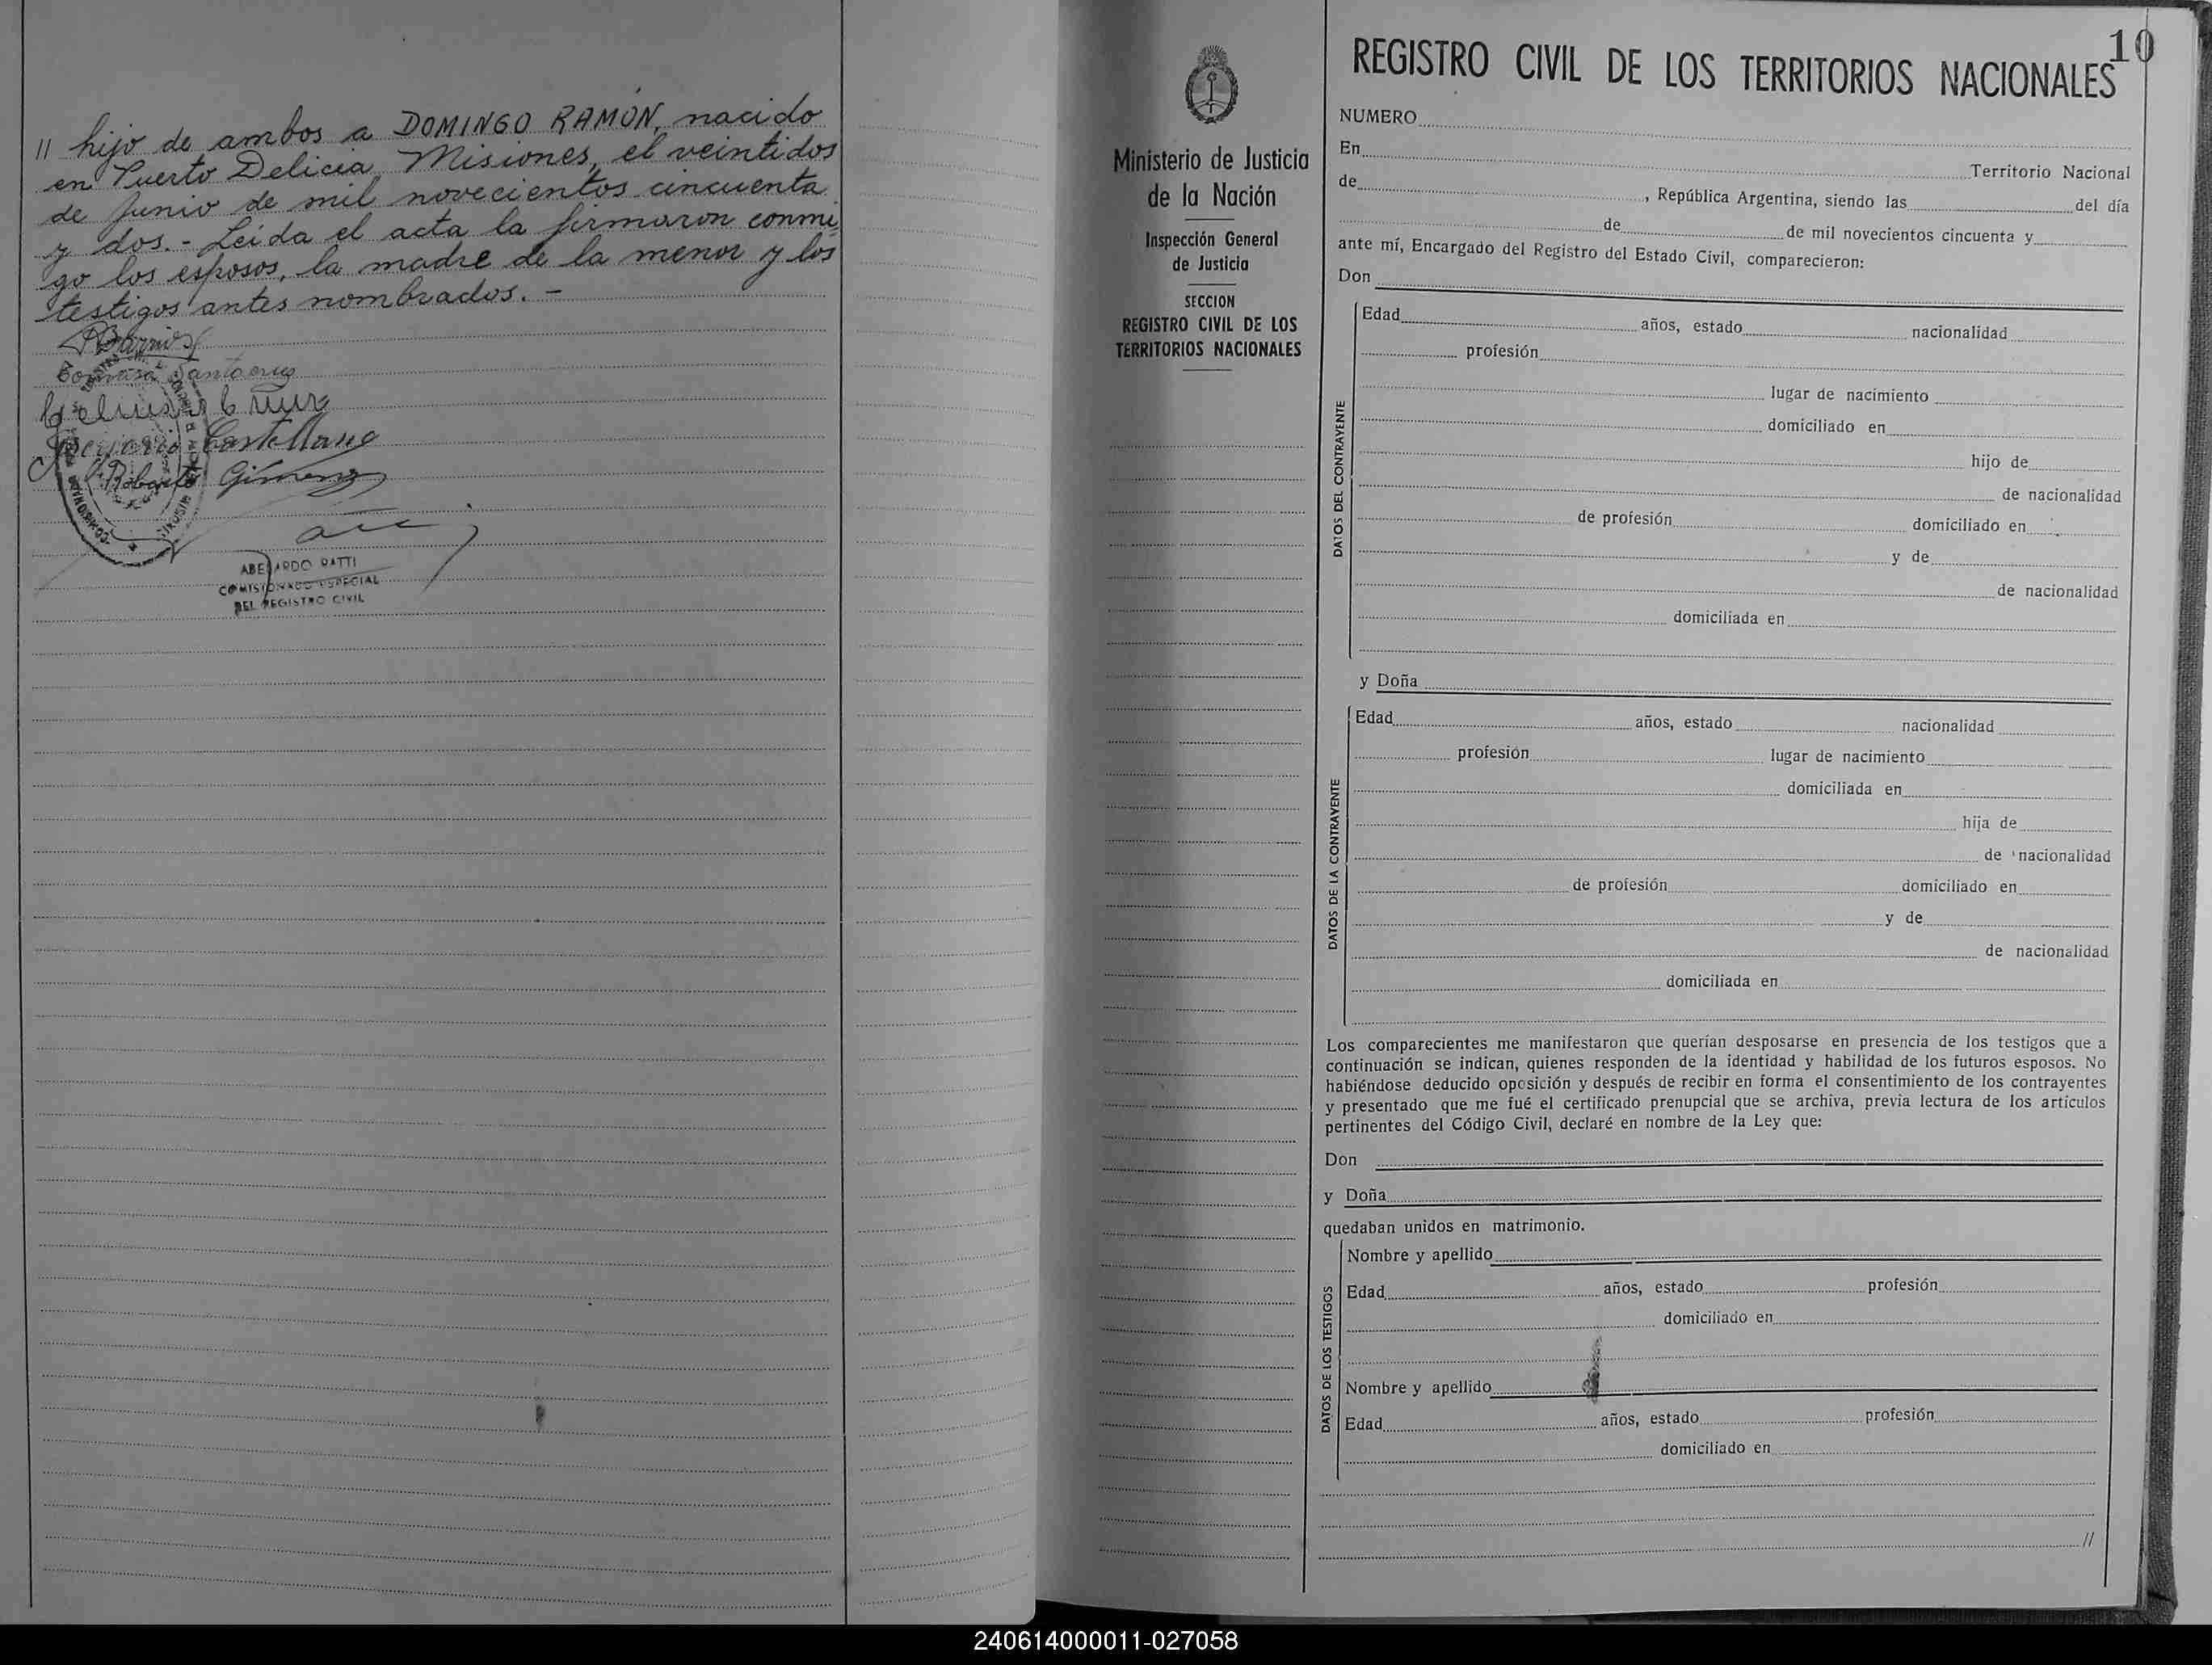 // hijo de ambos a DOMINGO RAMÓN, nacido
en Puerto Delicia, Misiones, el veintidos
de Junio de mil novecientos cincuenta
y dos.- Leida el acta la firmaron conmi
go los esposos, la madre de la menor y los
testigos antes nombrados.-
Santacruz
Castellano
Roberto Gimenez
ABELARDO RATTI
COMISIONADO ESPECIAL
DEL REGISTRO CIVIL
10
Ministerio de Justicia
de la Nación
Inspección General
de Justicia
SECCION
REGISTRO CIVIL DE LOS
TERRITORIOS NACIONALES
REGISTRO CIVIL DE LOS TERRITORIOS NACIONALES
NUMERO
En Territorio Nacional
de , República Argentina, siendo las del día
de de mil novecientos cincuenta y
ante mí, Encargado del Registro del Estado Civil, comparecieron:
Don
DATOS DEL CONTRAYENTE
Edad años, estado nacionalidad
profesión
lugar de nacimiento
domiciliado en
hijo de
de nacionalidad
de profesión domiciliado en
y de
de nacionalidad
domiciliada en
y Doña
DATOS DE LA CONTRAYENTE
Edad años, estado nacionalidad
profesión lugar de nacimiento
domiciliada en
hija de
de nacionalidad
de profesión domiciliado en
y de
de nacionalidad
domiciliada en
Los comparecientes me manifestaron que querían desposarse en presencia de los testigos que a
continuación se indican, quienes responden de la identidad y habilidad de los futuros esposos. No
habiéndose deducido oposición y después de recibir en forma el consentimiento de los contrayentes
y presentado que me fué el certificado prenupcial que se archiva, previa lectura de los artículos
pertinentes del Código Civil, declaré en nombre de la Ley que:
Don
y Doña
quedaban unidos en matrimonio.
DATOS DE LOS TESTIGOS
Nombre y apellido
Edad años, estado profesión
domiciliado en
Nombre y apellido
Edad años, estado profesión
domiciliado en
//
240614000011-027058